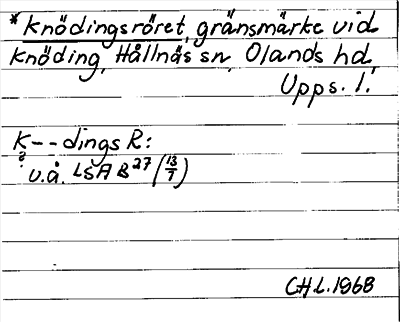 *Knödingsröret, gränsmärke vid
Knöding, Hållnäs sn, Olands hd,
Upps. l.
K--dings R:
?
u.å. LSA B27 (13/7)
CHL.1968